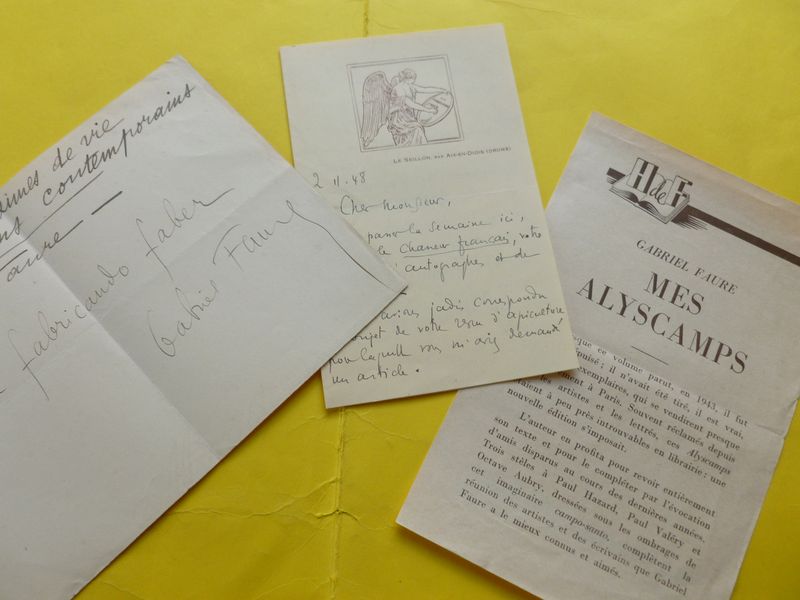 de vie
contemporains
Faure —
fabricando faber
Gabriel Faure
LE SEILLON PAR AIX-EN-DIOIS (DROME)
2 11.48
Cher Monsieur,
passer la semaine ici,
le Chasseur français, votre
autographes et de
avions jadis correspondu
sujet de votre revue d'apiculture
pour laquelle vous m'aviez demandé
un article.
H de F
GABRIEL FAURE
MES
ALYSCAMPS
que ce volume parut, en 1943, il fut
puisé ; il n'avait été tiré, il est vrai,
exemplaires, qui se vendirent presque
ment à Paris. Souvent réclamés depuis
les artistes et les lettrés, ces Alyscamps
aient à peu près introuvables en librairie ; une
nouvelle édition s'imposait.
L'auteur en profita pour revoir entièrement
son texte et pour le compléter par l'évocation
d'amis disparus au cours des dernières années.
Trois stèles à Paul Hazard, Paul Valéry et
Octave Aubry, dressées sous les ombrages de
cet imaginaire campo-santo, complètent la
réunion des artistes et des écrivains que Gabriel
Faure a le mieux connus et aimés.